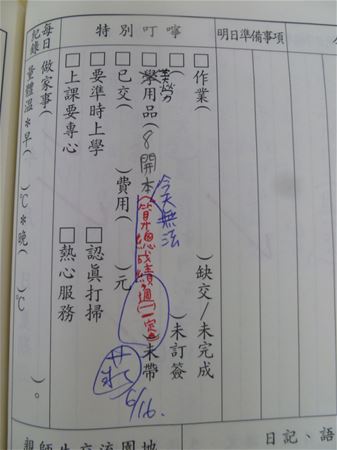 明日準備事項
特別叮嚀
□作業（　）缺交/未完成
（　）未訂簽
□美勞用品（8開本　）未帶
今天無法
算總成績
□已交（　）費用（　）元
6/16.
□要準時上學　□認真打掃
□上課要專心　□熱心服務
每日紀錄
做家事（　）。
量體溫＊早（　）℃＊晚（　）℃
親師生交流園地
日記、語